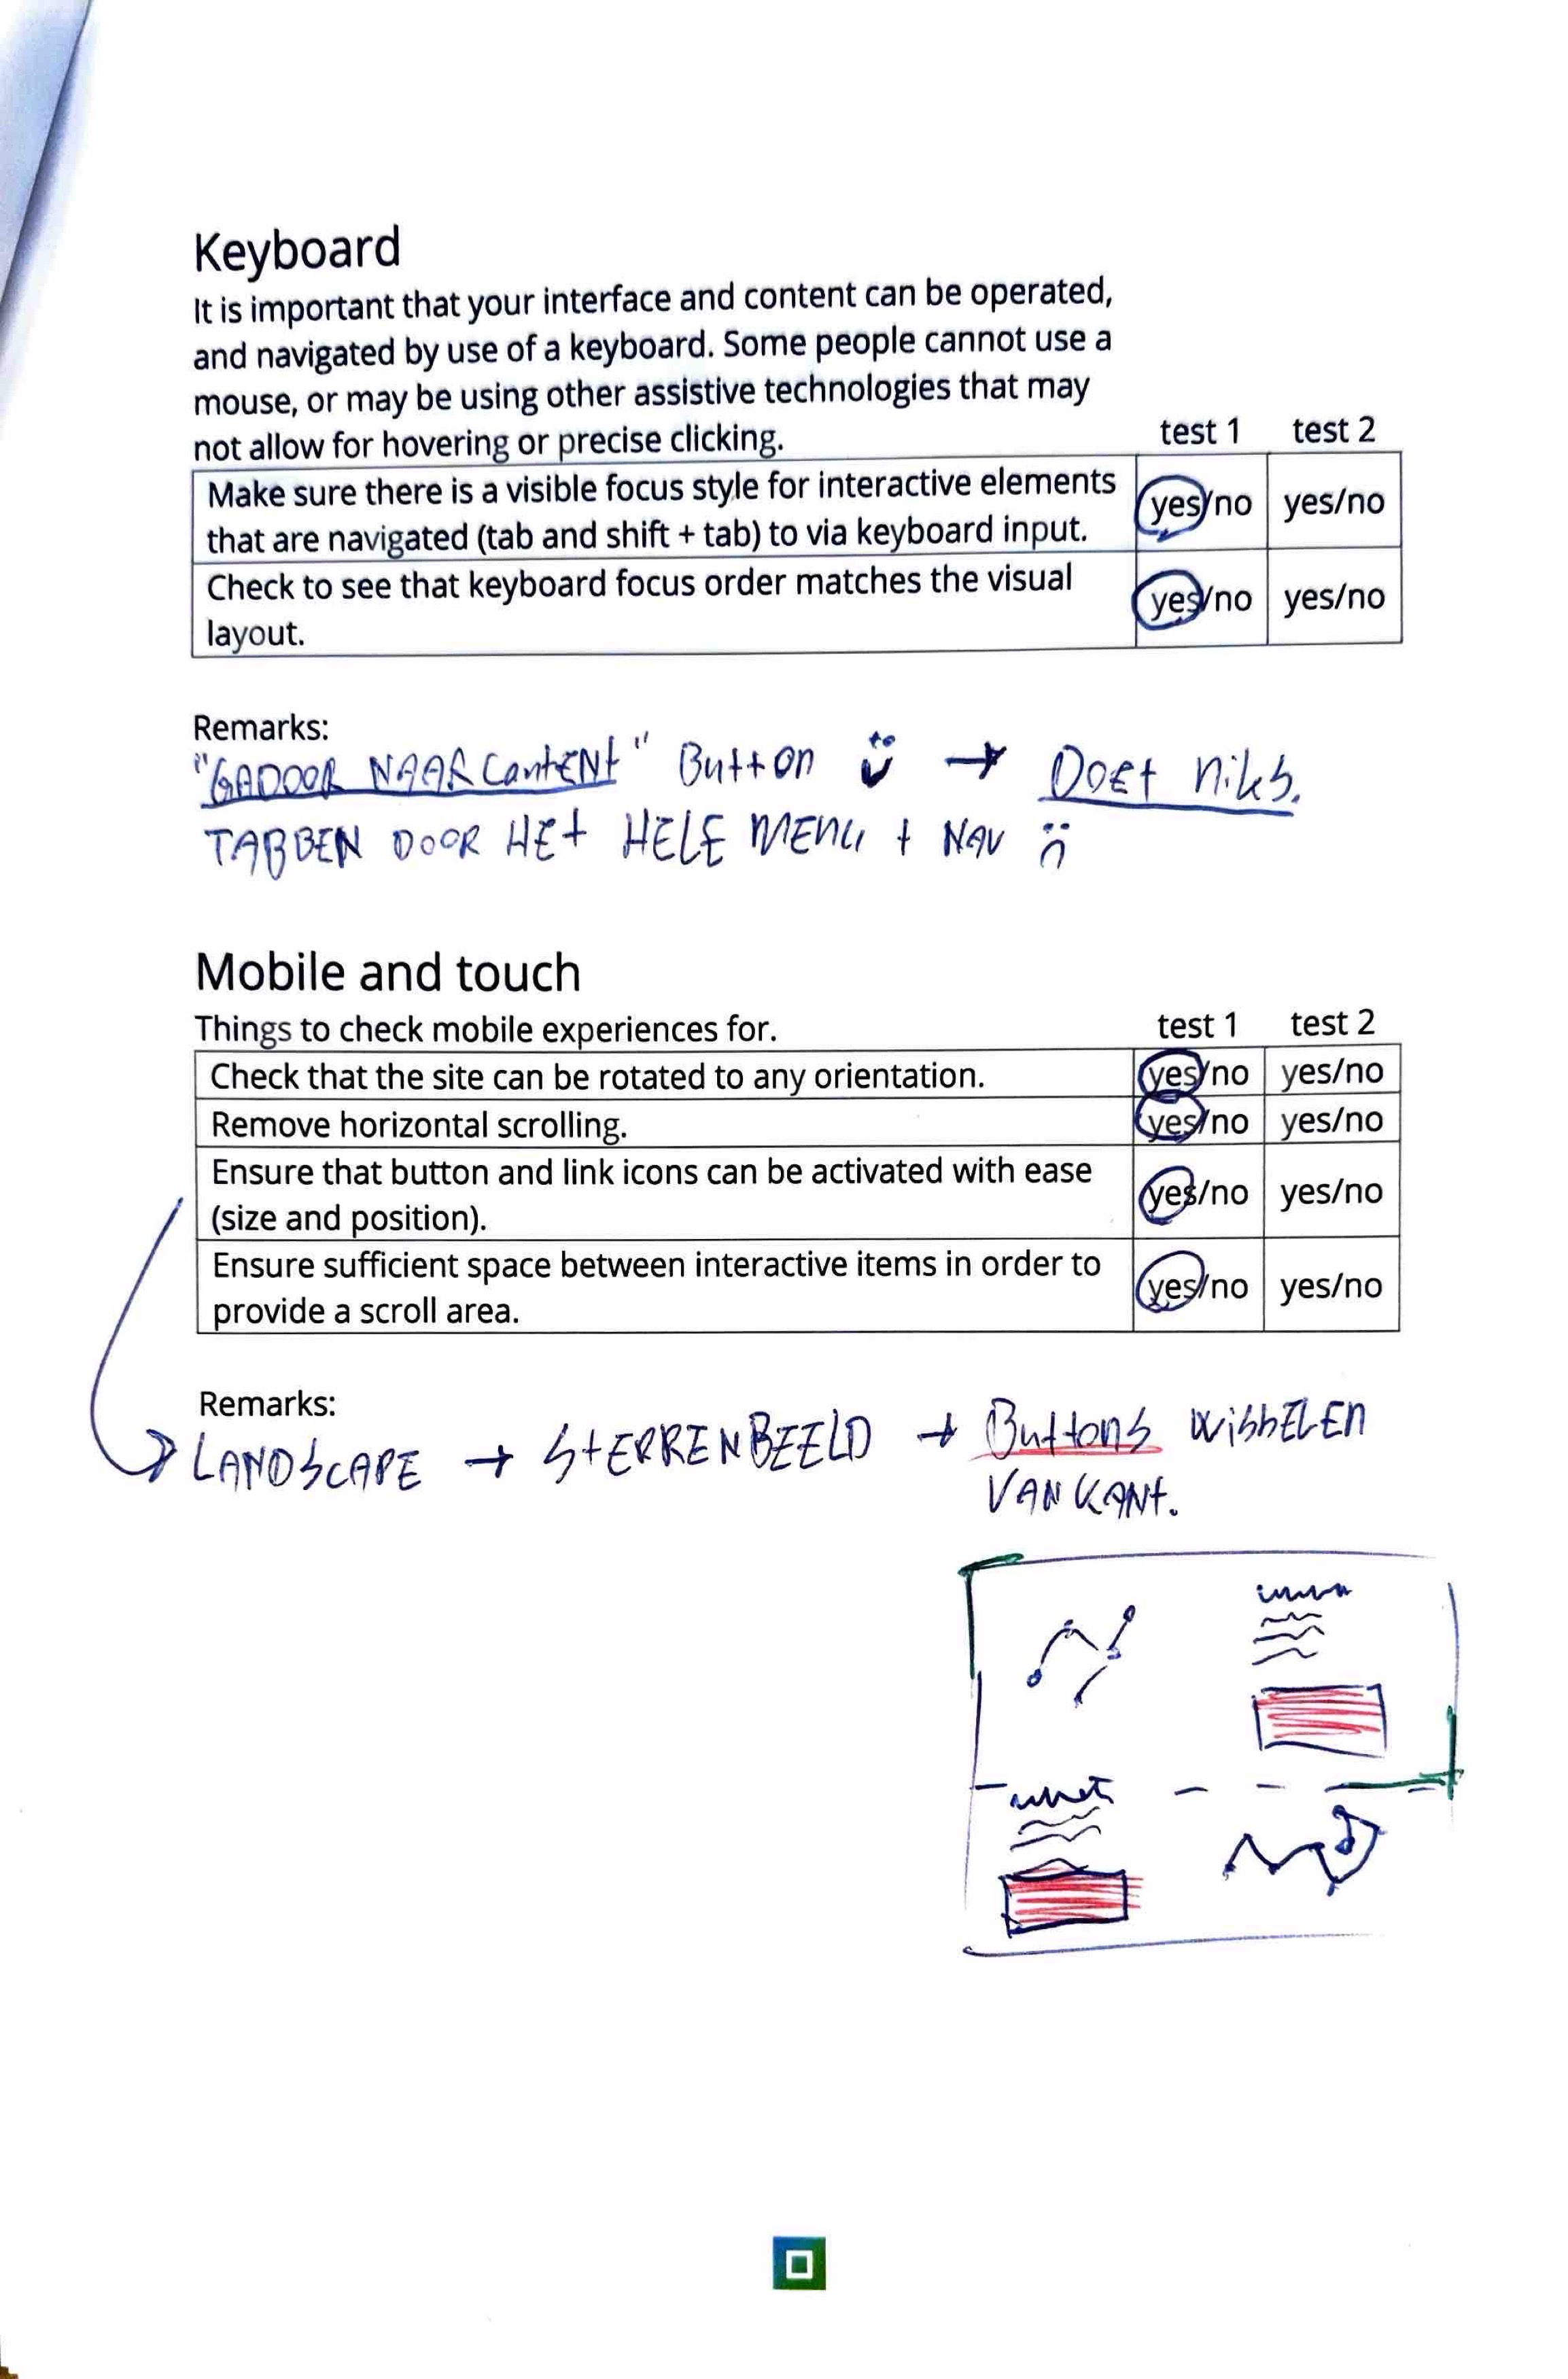 Keyboard
It is important that your interface and content can be operated,
and navigated by use of a keyboard. Some people cannot use a
mouse, or may be using other assistive technologies that may
not allow for hovering or precise clicking. test 1 test 2
Make sure there is a visible focus style for interactive elements
that are navigated (tab and shift + tab) to via keyboard input. yes/no yes/no
Check to see that keyboard focus order matches the visual
layout. yes/no yes/no
Remarks:
"GADOOR NAAR ContENt" Button → DOEt niks.
TABBEN DOOR HEt HELE MENU + NAV
Mobile and touch
Things to check mobile experiences for. test 1 test 2
Check that the site can be rotated to any orientation. yes/no yes/no
Remove horizontal scrolling. yes/no yes/no
Ensure that button and link icons can be activated with ease
(size and position). yes/no yes/no
Ensure sufficient space between interactive items in order to
provide a scroll area. yes/no yes/no
Remarks:
LANDSCAPE → StERRENBEELD → Buttons WissELEn
VAN KANt.